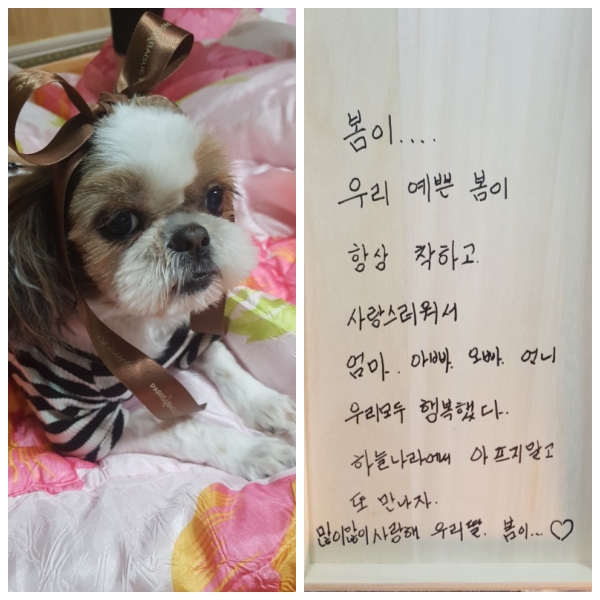 PARIS
봄이....
우리 예쁜 봄이
항상 착하고.
사랑스러워서
엄마. 아빠. 오빠. 언니
우리모두 행복했다..
하늘나라에서 아프지말고
또 만나자.
많이많이 사랑해 우리딸. 봄이... ♡